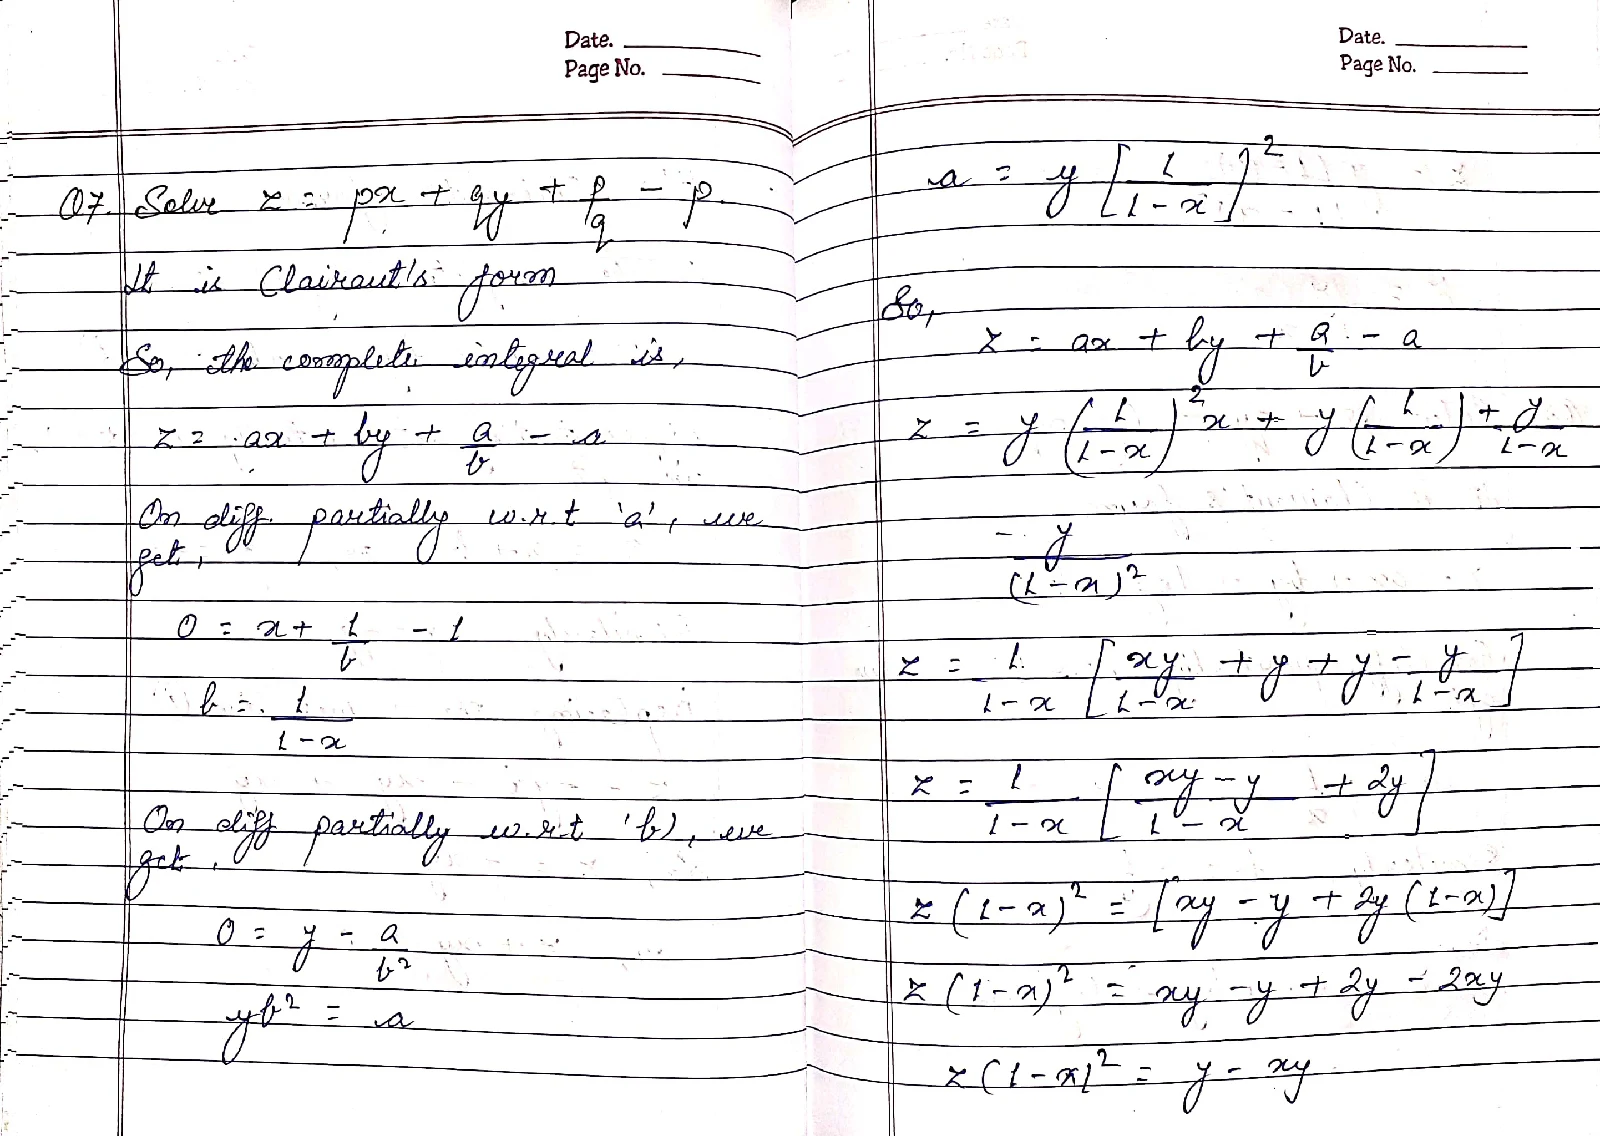 Date.
Page No.
Q7. Solve z = px + qy + p/q - p.
It is Clairaut's form
So, the complete integral is,
z = ax + by + a/b - a
On diff. partially w.r.t 'a', we
get,
0 = x + 1/b - 1
b = 1/(1-x)
On diff partially w.r.t 'b', we
get,
0 = y - a/b²
yb² = a
Date.
Page No.
a = y [1/(1-x)]²
So,
z = ax + by + a/b - a
z = y (1/(1-x))² x + y (1/(1-x)) + y/(1-x)
- y/(1-x)²
z = 1/(1-x) [xy/(1-x) + y + y - y/(1-x)]
z = 1/(1-x) [(xy-y)/(1-x) + 2y]
z (1-x)² = [xy - y + 2y (1-x)]
z (1-x)² = xy - y + 2y - 2xy
z (1-x)² = y - xy